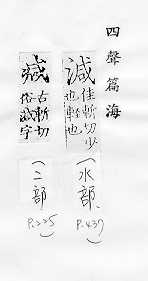 四聲篇海
減 佳斬切少
也輕也
(水部、
P.437)
𢦑 古斬切
俗減字
(二部
P.225)